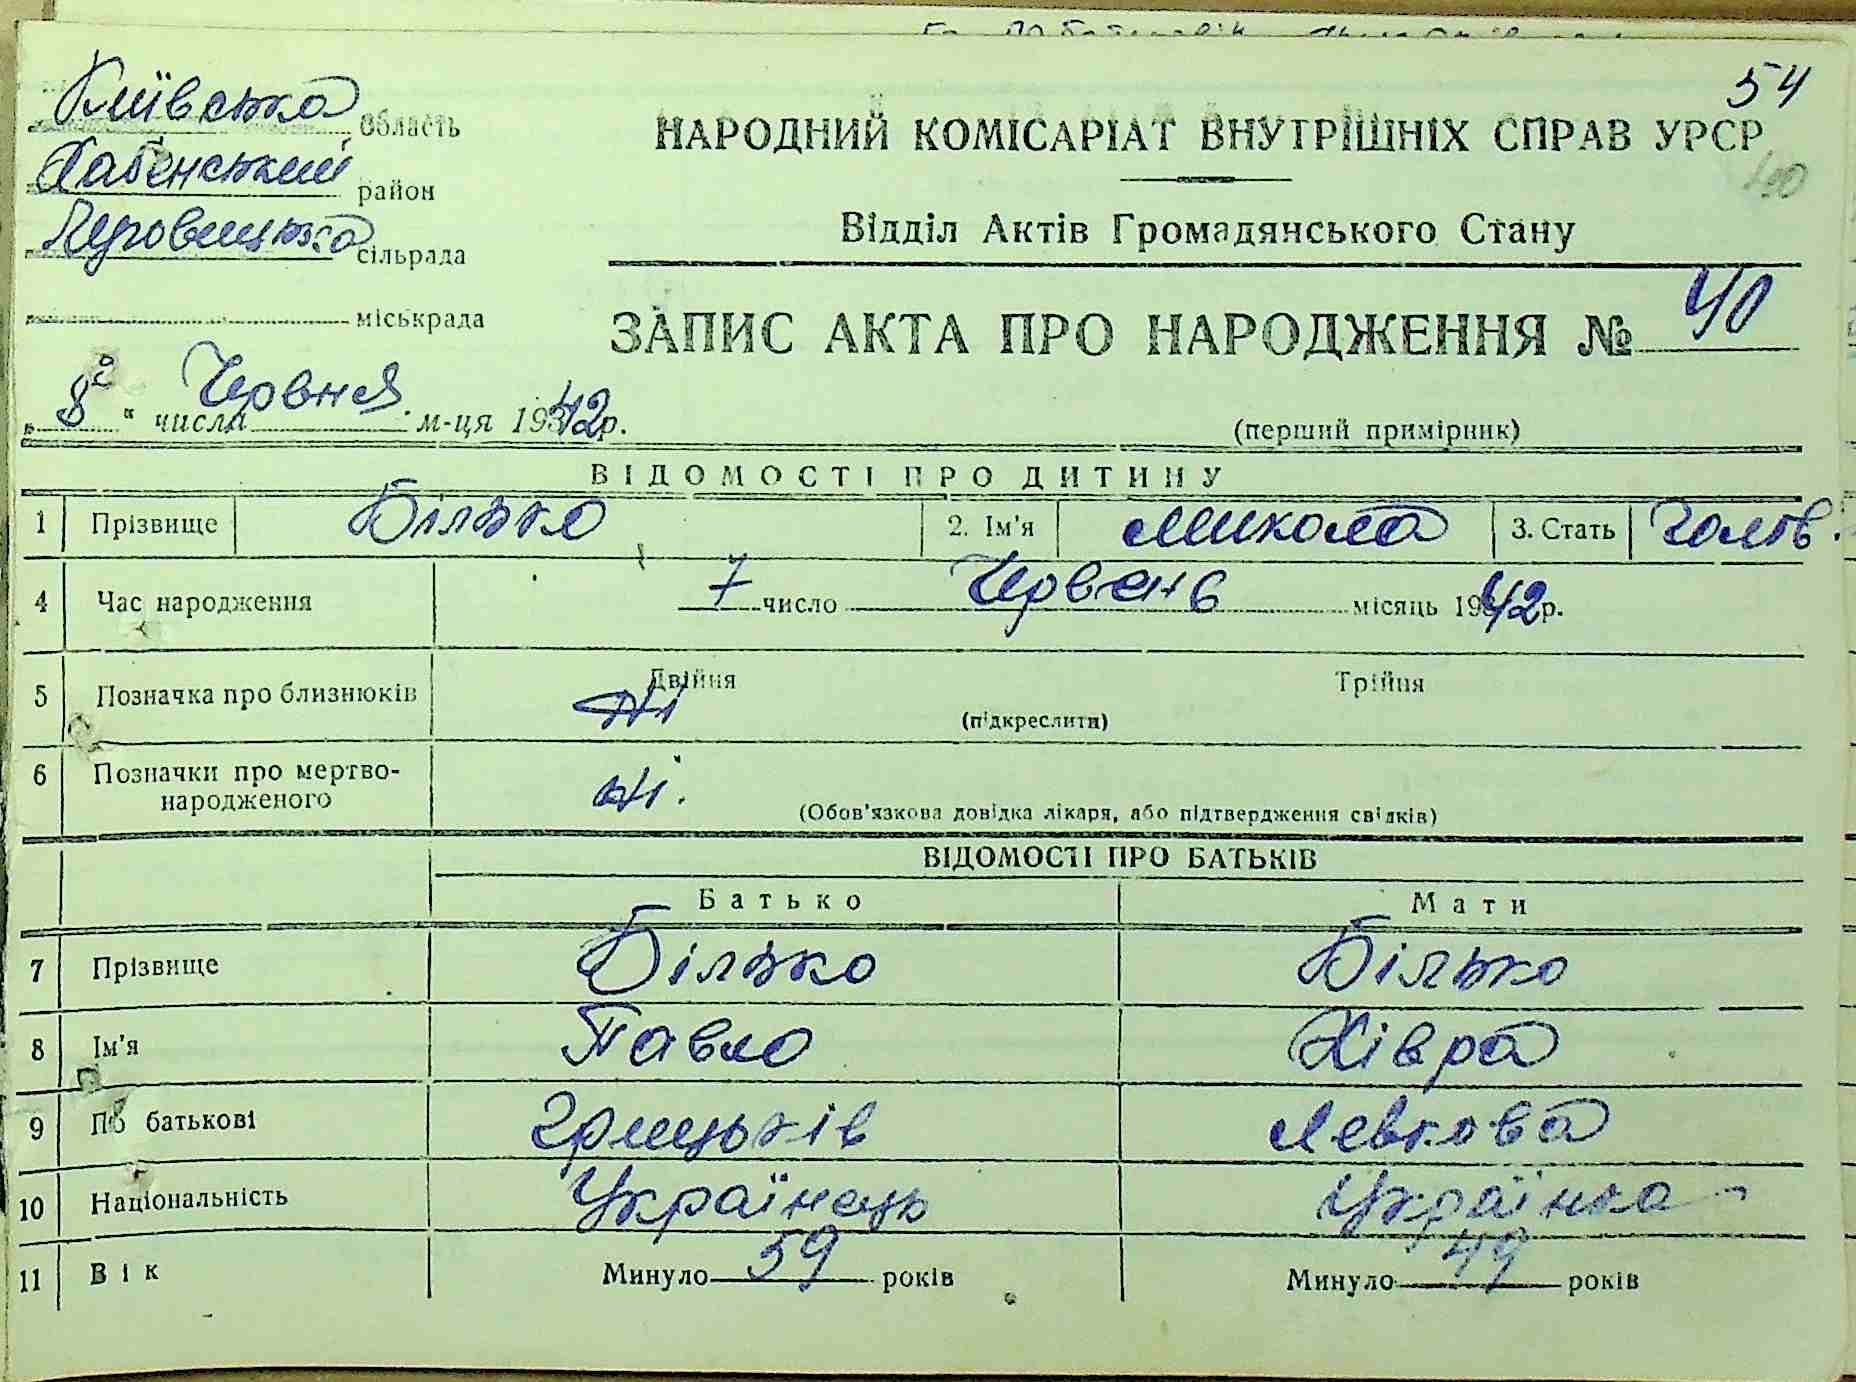 54
Київська область
Хабенський район
сільрада
міськрада
„8“ числа Червня м-ця 1942р.
НАРОДНИЙ КОМІСАРІАТ ВНУТРІШНІХ СПРАВ УРСР
40
Відділ Актів Громадянського Стану
ЗАПИС АКТА ПРО НАРОДЖЕННЯ № 40
(перший примірник)
ВІДОМОСТІ ПРО ДИТИНУ
1 Прізвище Білько 2. Ім'я Микола 3. Стать
4 Час народження 7 число Червень місяць 1942р.
5 Позначка про близнюків Двійня Трійня
ні (підкреслити)
6 Позначки про мертво-
народженого ні. (Обов'язкова довідка лікаря, або підтвердження свідків)
ВІДОМОСТІ ПРО БАТЬКІВ
Батько Мати
7 Прізвище Білько Білько
8 Ім'я Павло Хівра
9 По батькові Грицьків Левкова
10 Національність Українець Українка
11 Вік Минуло 59 років Минуло 49 років